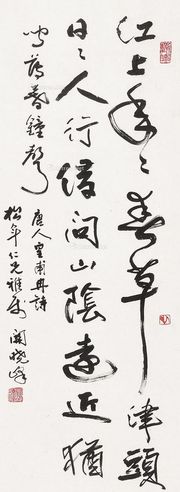 江上年々春草津頭
日々人行借問山陰遠近猶
聞薄暮鐘聲
唐人皇甫冉詩
松年仁兄雅屬 関曉峰